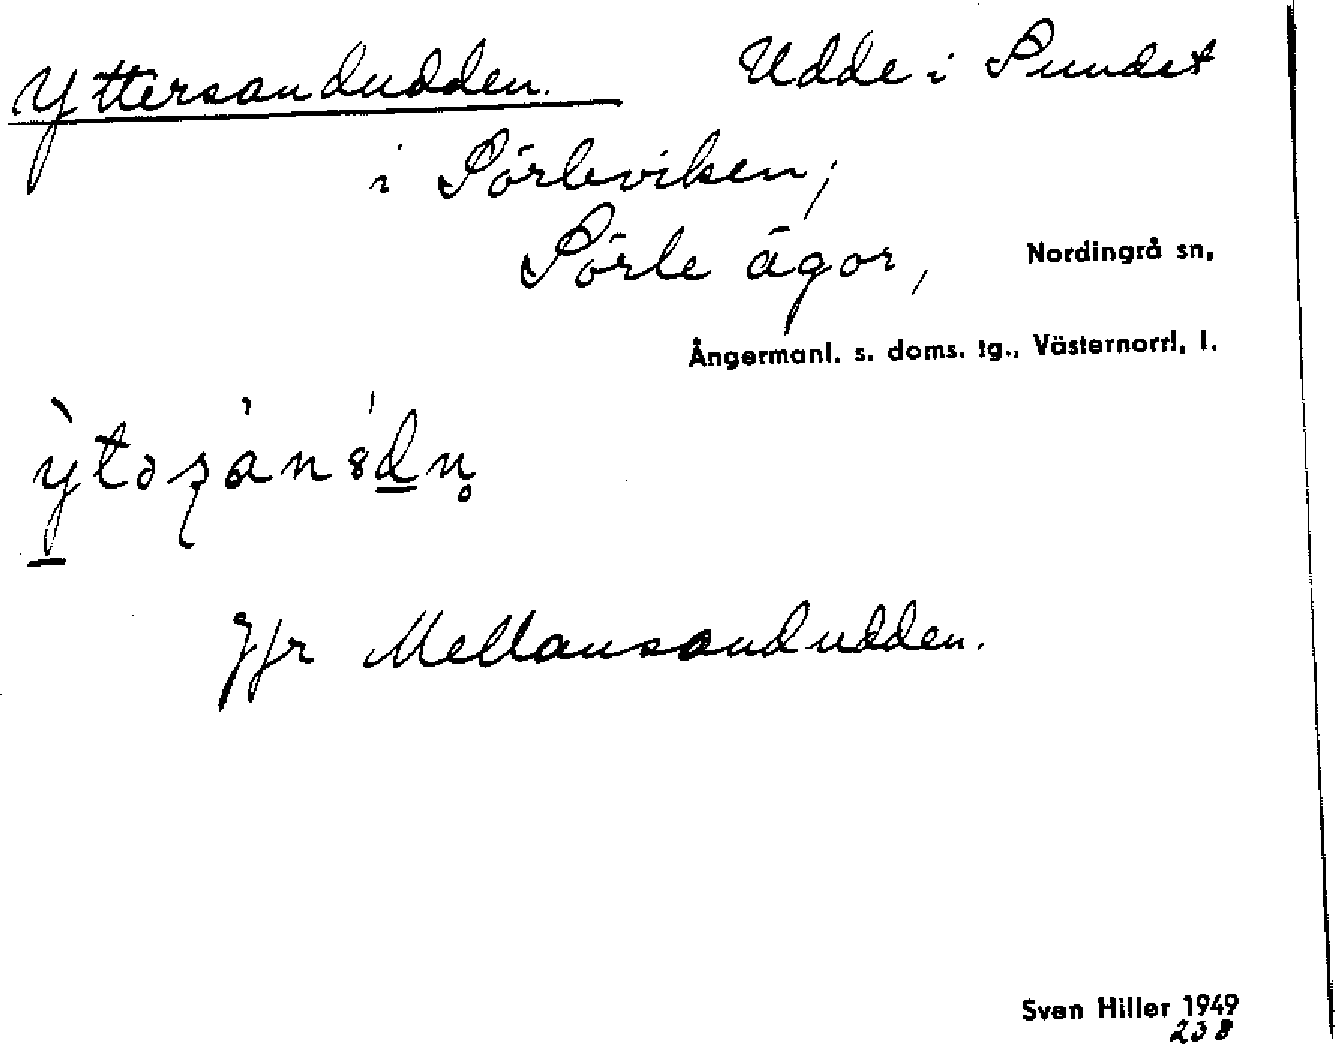 Yttersandudden. Udde i Sundet
i Sörleviken;
Sörle ägor, Nordingrå sn,
Ångermanl. s. doms. tg., Västernorrl. l.
Jfr Mellansandudden.
Sven Hiller 1949
238